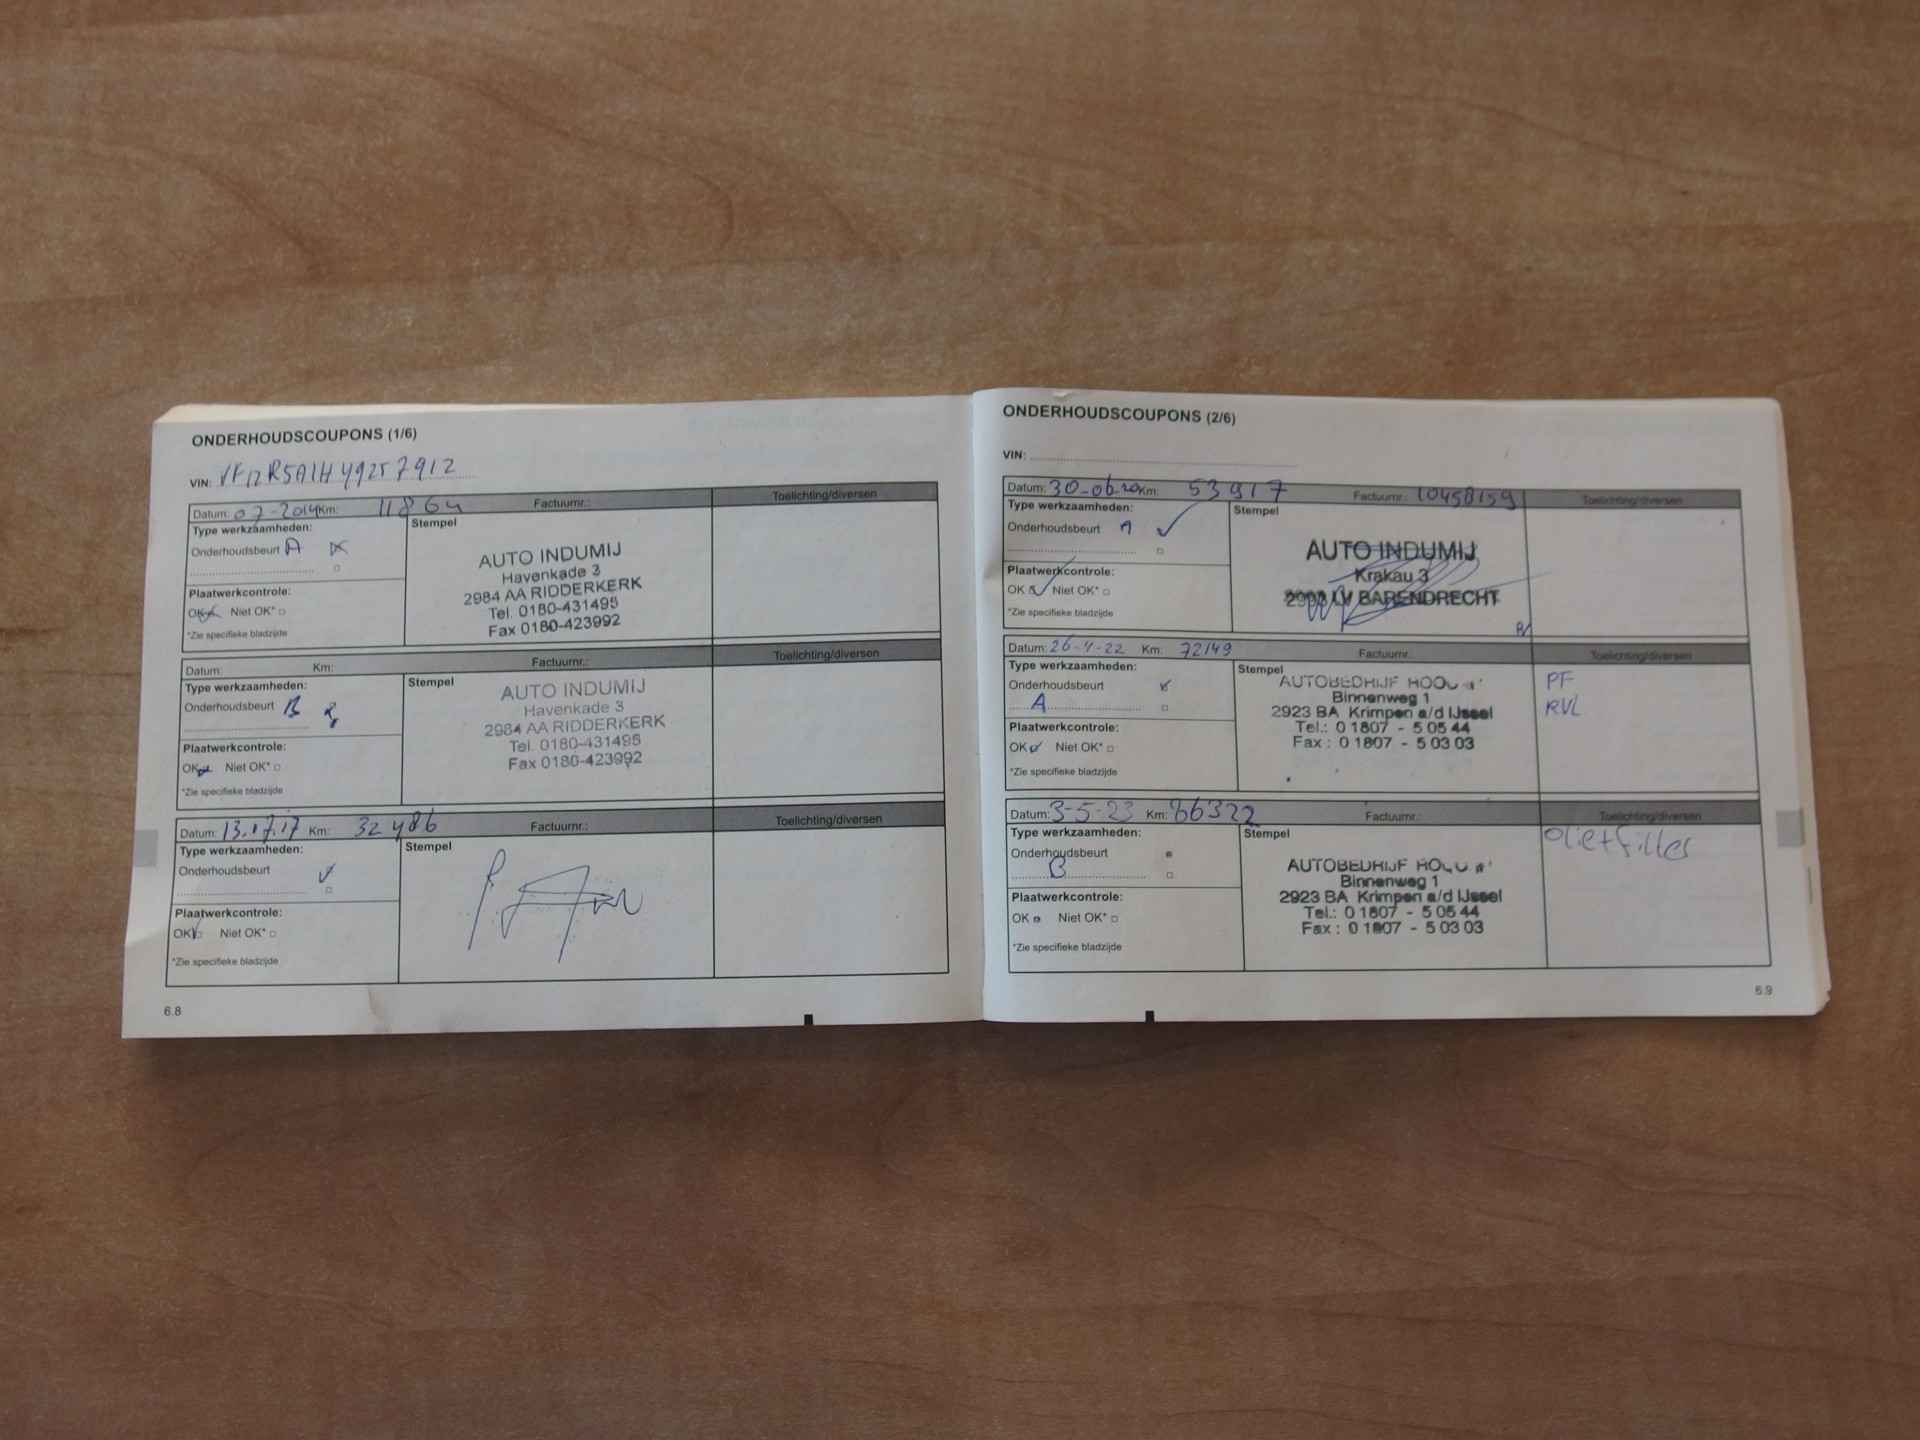 ONDERHOUDSCOUPONS (1/6)
VIN:
Datum: 07-2014 Km: 11864 Factuurnr.: Toelichting/diversen
Type werkzaamheden:
Stempel
Onderhoudsbeurt A
Plaatwerkcontrole:
OK Niet OK*
*Zie specifieke bladzijde
AUTO INDUMIJ
Havenkade 3
2984 AA RIDDERKERK
Tel. 0180-431495
Fax 0180-423992
Datum: Km: Factuurnr.: Toelichting/diversen
Type werkzaamheden:
Stempel
Onderhoudsbeurt B
Plaatwerkcontrole:
OK Niet OK*
*Zie specifieke bladzijde
AUTO INDUMIJ
Havenkade 3
2984 AA RIDDERKERK
Tel. 0180-431495
Fax 0180-423992
Datum: 13.07.17 Km: 32486 Factuurnr.: Toelichting/diversen
Type werkzaamheden:
Stempel
Onderhoudsbeurt
Plaatwerkcontrole:
OK Niet OK*
*Zie specifieke bladzijde
6.8
ONDERHOUDSCOUPONS (2/6)
VIN:
Datum: 30-06-20 Km: 53917 Factuurnr.: 10458159 Toelichting/diversen
Type werkzaamheden:
Stempel
Onderhoudsbeurt A
Plaatwerkcontrole:
OK Niet OK*
*Zie specifieke bladzijde
AUTO INDUMIJ
Krakau 3
2993 LV BARENDRECHT
Datum: 26-4-22 Km: 72149 Factuurnr.: Toelichting/diversen
Type werkzaamheden:
Stempel
Onderhoudsbeurt
A
Plaatwerkcontrole:
OK Niet OK*
*Zie specifieke bladzijde
AUTOBEDRIJF
Binnenweg 1
2923 BA Krimpen a/d IJssel
Tel.: 0 1807 - 5 05 44
Fax : 0 1807 - 5 03 03
PF
RVL
Datum: 3-5-23 Km: 86322 Factuurnr.: Toelichting/diversen
Type werkzaamheden:
Stempel
Onderhoudsbeurt
B
Plaatwerkcontrole:
OK Niet OK*
*Zie specifieke bladzijde
AUTOBEDRIJF
Binnenweg 1
2923 BA Krimpen a/d IJssel
Tel.: 0 1807 - 5 05 44
Fax : 0 1807 - 5 03 03
6.9